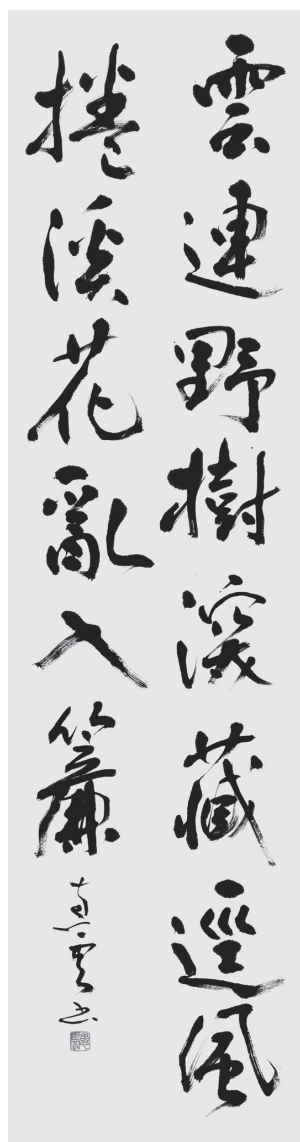 雲連野樹深藏逕風
捲溪花亂入簾